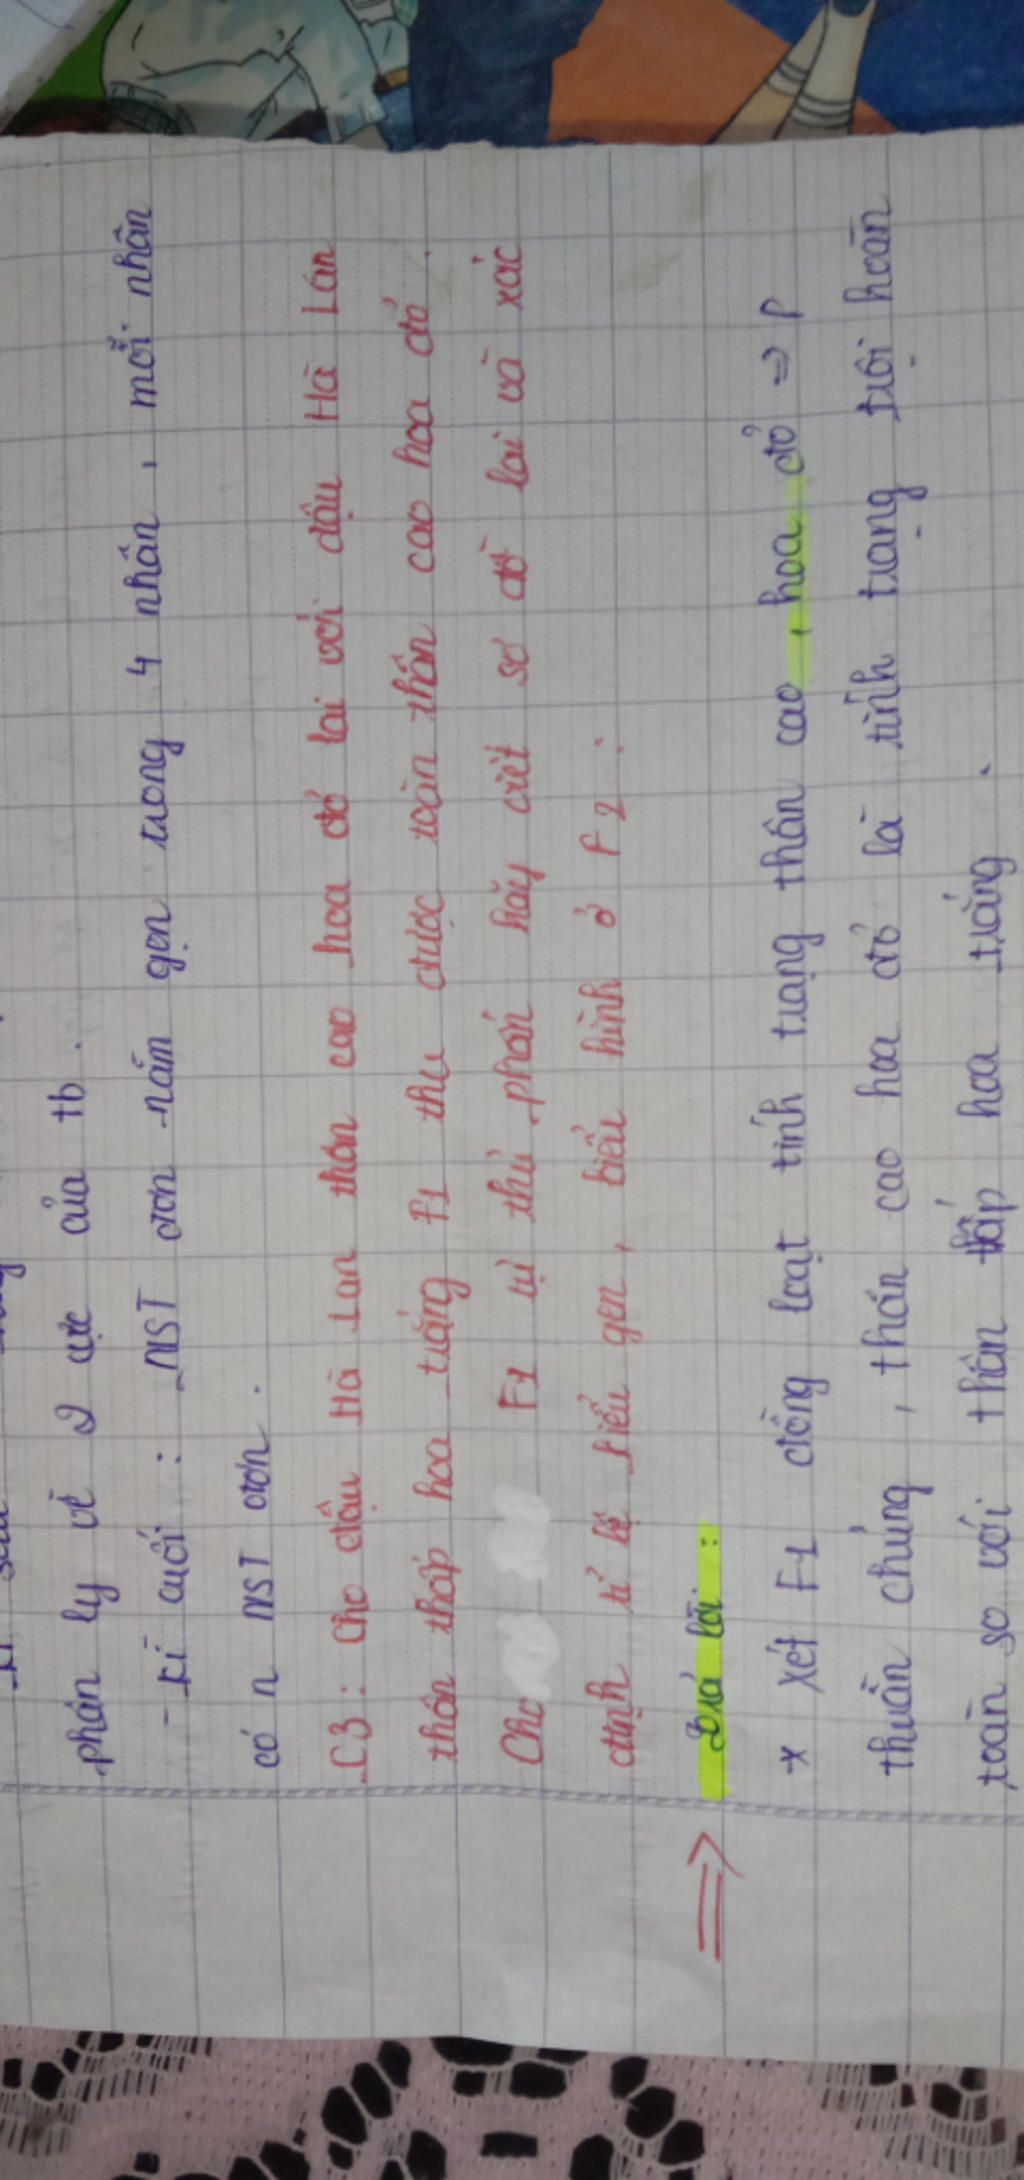 phân ly về 2 cực của tb.
- kì cuối : NST đơn nằm gọn trong 4 nhân, mỗi nhân
có n NST đơn.
C3: Cho đậu Hà Lan thân cao hoa đỏ lai với đậu Hà Lan
thân thấp hoa trắng F1 thu được toàn thân cao hoa đỏ.
Cho F1 tự thụ phấn hãy viết sơ đồ lai và xác
định tỉ lệ kiểu gen, kiểu hình ở F2.
Trả lời :
* Xét F1 đồng loạt tính trạng thân cao, hoa đỏ => P
thuần chủng, thân cao hoa đỏ là tính trạng trội hoàn
toàn so với thân thấp hoa trắng.